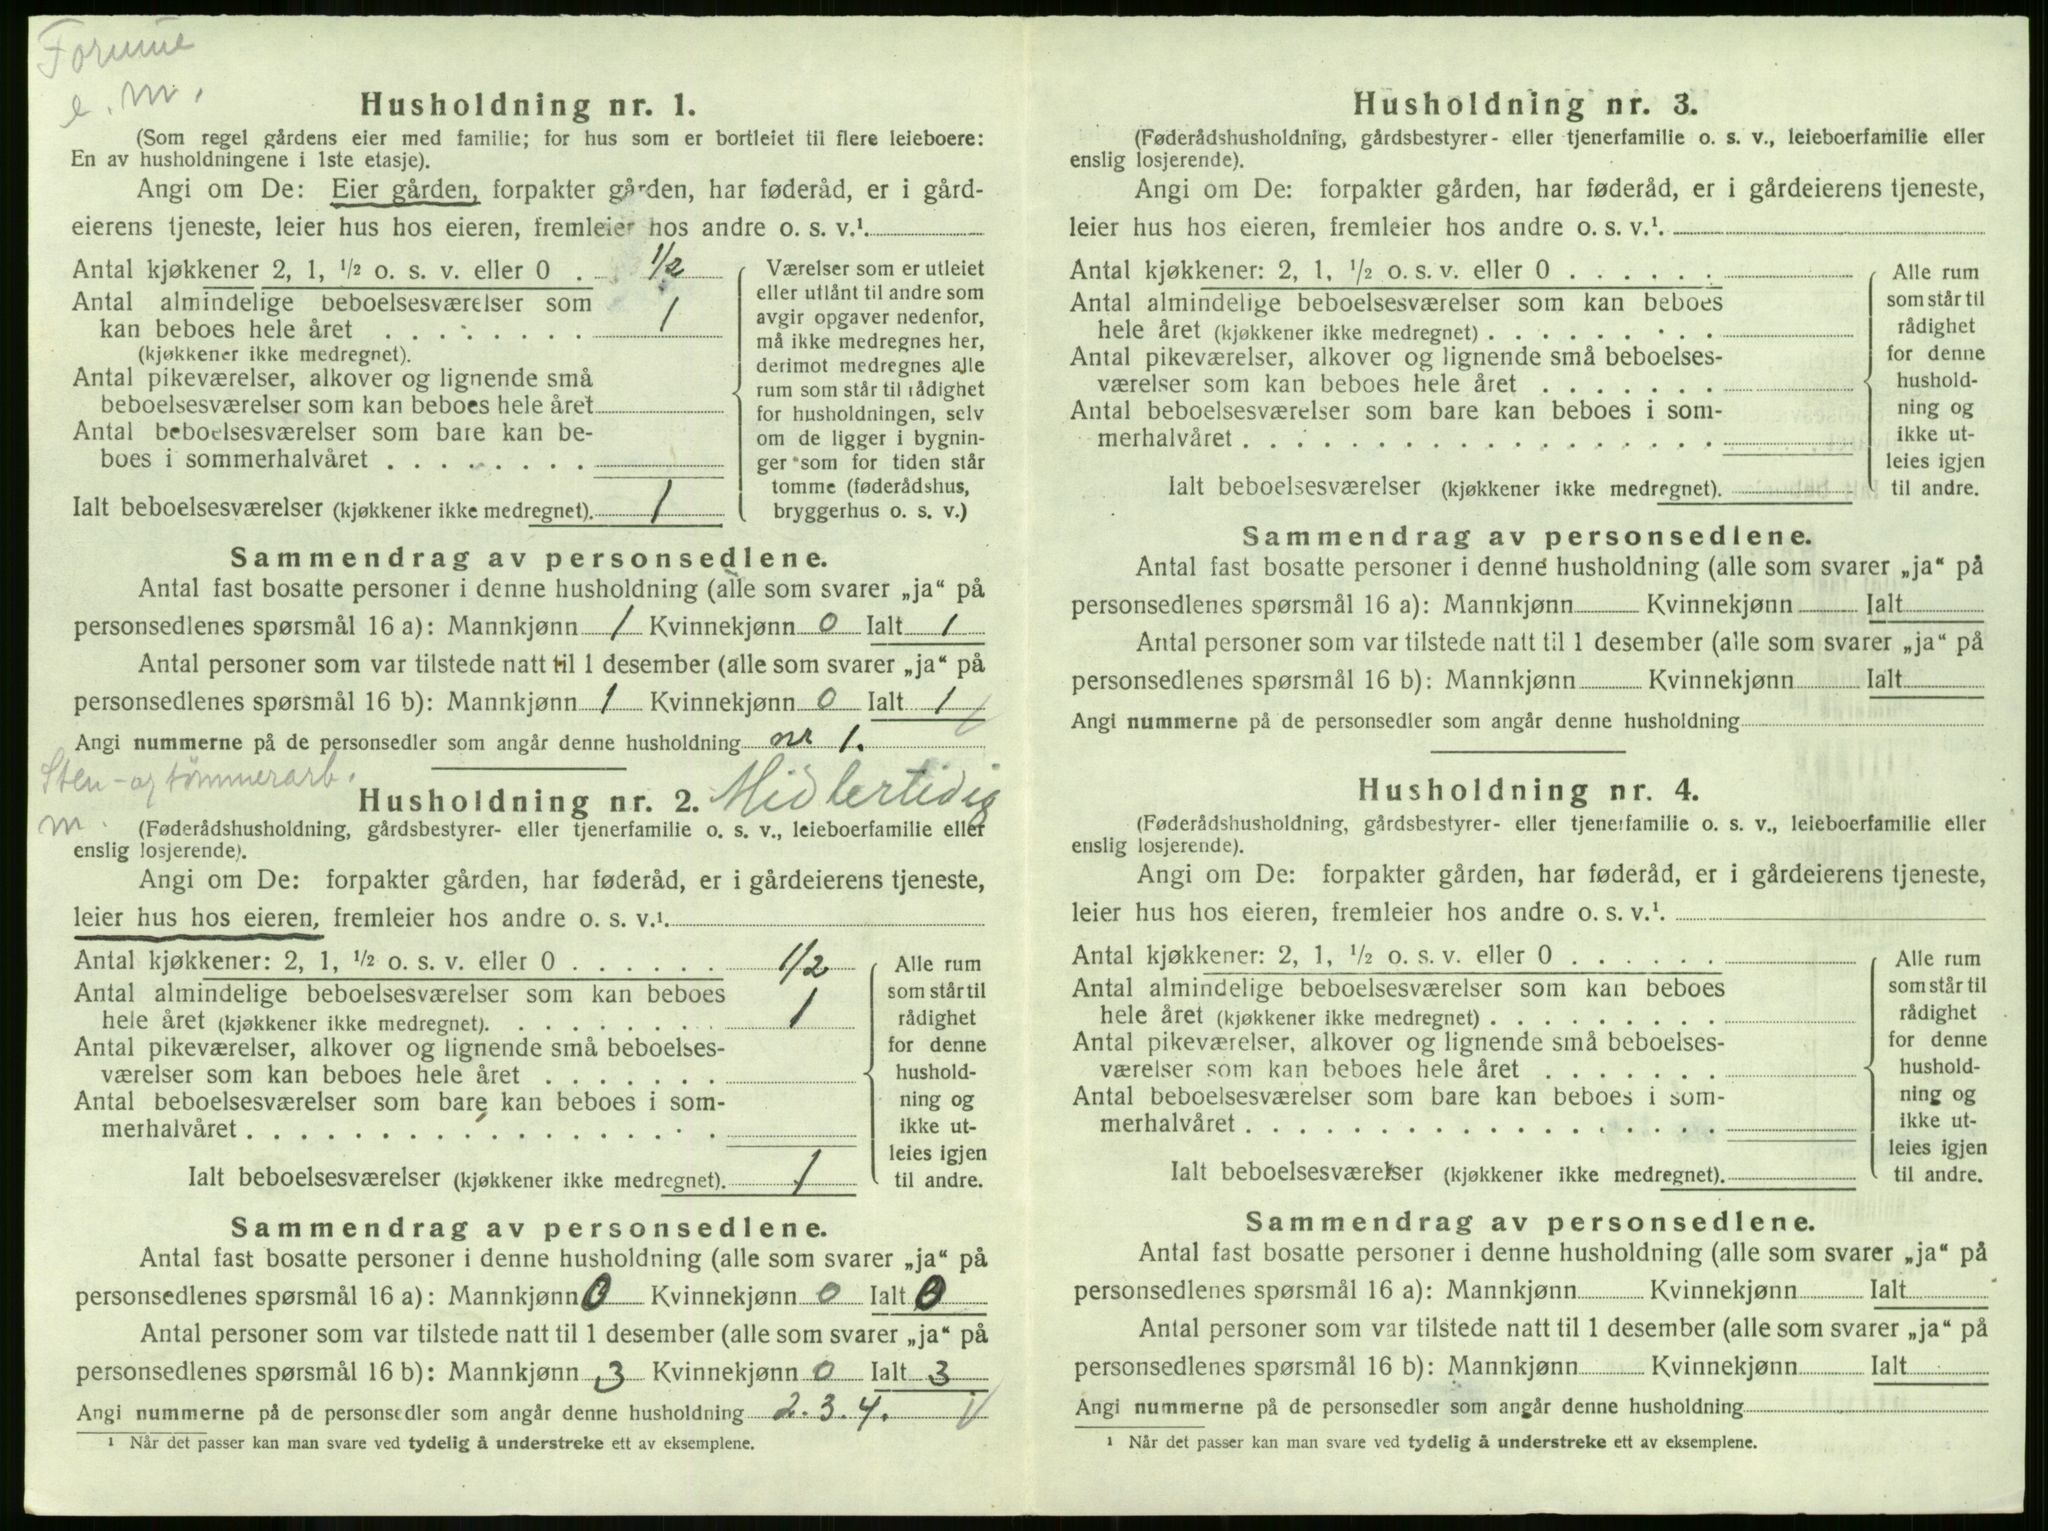 Formue
e. m.
Husholdning nr. 1.
(Som regel gårdens eier med familie; for hus som er bortleiet til flere leieboere:
En av husholdningene i 1ste etasje).
Angi om De: Eier gården, forpakter gården, har føderåd, er i gård-
eierens tjeneste, leier hus hos eieren, fremleier hos andre o. s. v.¹.
Antal kjøkkener 2, 1, ½ o. s. v. eller 0 . 1/2
Antal almindelige beboelsesværelser som
kan beboes hele året . . . . . . . . 1
(kjøkkener ikke medregnet).
Antal pikeværelser, alkover og lignende små
beboelsesværelser som kan beboes hele året
Antal beboelsesværelser som bare kan be-
boes i sommerhalvåret . . . . . . . .
Ialt beboelsesværelser (kjøkkener ikke medregnet). 1
Værelser som er utleiet
eller utlånt til andre som
avgir opgaver nedenfor,
må ikke medregnes her,
derimot medregnes alle
rum som står til rådighet
for husholdningen, selv
om de ligger i bygnin-
ger som for tiden står
tomme (føderådshus,
bryggerhus o. s. v.)
Sammendrag av personsedlene.
Antal fast bosatte personer i denne husholdning (alle som svarer „ja“ på
personsedlenes spørsmål 16 a): Mannkjønn 1 Kvinnekjønn 0 Ialt 1
Antal personer som var tilstede natt til 1 desember (alle som svarer „ja“ på
personsedlenes spørsmål 16 b): Mannkjønn 1 Kvinnekjønn 0 Ialt 1
Angi nummerne på de personsedler som angår denne husholdning nr 1.
Sten- og tømmerarb.
m.
Husholdning nr. 2. Midlertidig
(Føderådshusholdning, gårdsbestyrer- eller tjenerfamilie o. s. v., leieboerfamilie eller
enslig losjerende).
Angi om De: forpakter gården, har føderåd, er i gårdeierens tjeneste,
leier hus hos eieren, fremleier hos andre o. s. v.¹.
Antal kjøkkener: 2, 1, ½ o. s. v. eller 0 . . . . . . 1/2
Antal almindelige beboelsesværelser som kan beboes
hele året (kjøkkener ikke medregnet). . . . . . . . . 1
Antal pikeværelser, alkover og lignende små beboelses-
værelser som kan beboes hele året . . . . . . .
Antal beboelsesværelser som bare kan beboes i som-
merhalvåret . . . . . . . . . . . . . . . . . .
Ialt beboelsesværelser (kjøkkener ikke medregnet). 1
Alle rum
som står til
rådighet
for denne
hushold-
ning og
ikke ut-
leies igjen
til andre.
Sammendrag av personsedlene.
Antal fast bosatte personer i denne husholdning (alle som svarer „ja“ på
personsedlenes spørsmål 16 a): Mannkjønn 0 Kvinnekjønn 0 Ialt 0
Antal personer som var tilstede natt til 1 desember (alle som svarer „ja“ på
personsedlenes spørsmål 16 b): Mannkjønn 3 Kvinnekjønn 0 Ialt 3
Angi nummerne på de personsedler som angår denne husholdning 2. 3. 4.
¹ Når det passer kan man svare ved tydelig å understreke ett av eksemplene.
Husholdning nr. 3.
(Føderådshusholdning, gårdsbestyrer- eller tjenerfamilie o. s. v., leieboerfamilie eller
enslig losjerende).
Angi om De: forpakter gården, har føderåd, er i gårdeierens tjeneste,
leier hus hos eieren, fremleier hos andre o. s. v.¹.
Antal kjøkkener: 2, 1, ½ o. s. v. eller 0 . . . . . .
Antal almindelige beboelsesværelser som kan beboes
hele året (kjøkkener ikke medregnet) . . . . . . . . .
Antal pikeværelser, alkover og lignende små beboelses-
værelser som kan beboes hele året . . . . . . .
Antal beboelsesværelser som bare kan beboes i som-
merhalvåret . . . . . . . . . . . . . . . . . .
Ialt beboelsesværelser (kjøkkener ikke medregnet).
Alle rum
som står til
rådighet
for denne
hushold-
ning og
ikke ut-
leies igjen
til andre.
Sammendrag av personsedlene.
Antal fast bosatte personer i denne husholdning (alle som svarer „ja“ på
personsedlenes spørsmål 16 a): Mannkjønn Kvinnekjønn Ialt
Antal personer som var tilstede natt til 1 desember (alle som svarer „ja“ på
personsedlenes spørsmål 16 b): Mannkjønn Kvinnekjønn Ialt
Angi nummerne på de personsedler som angår denne husholdning
Husholdning nr. 4.
(Føderådshusholdning, gårdsbestyrer- eller tjenerfamilie o. s. v., leieboerfamilie eller
enslig losjerende).
Angi om De: forpakter gården, har føderåd, er i gårdeierens tjeneste,
leier hus hos eieren, fremleier hos andre o. s. v.¹.
Antal kjøkkener: 2, 1, ½ o. s. v. eller 0 . . . . . .
Antal almindelige beboelsesværelser som kan beboes
hele året (kjøkkener ikke medregnet) . . . . . . . . .
Antal pikeværelser, alkover og lignende små beboelses-
værelser som kan beboes hele året . . . . . . .
Antal beboelsesværelser som bare kan beboes i som-
merhalvåret . . . . . . . . . . . . . . . . . .
Ialt beboelsesværelser (kjøkkener ikke medregnet).
Alle rum
som står til
rådighet
for denne
hushold-
ning og
ikke ut-
leies igjen
til andre.
Sammendrag av personsedlene.
Antal fast bosatte personer i denne husholdning (alle som svarer „ja“ på
personsedlenes spørsmål 16 a): Mannkjønn Kvinnekjønn Ialt
Antal personer som var tilstede natt til 1 desember (alle som svarer „ja“ på
personsedlenes spørsmål 16 b): Mannkjønn Kvinnekjønn Ialt
Angi nummerne på de personsedler som angår denne husholdning
¹ Når det passer kan man svare ved tydelig å understreke ett av eksemplene.